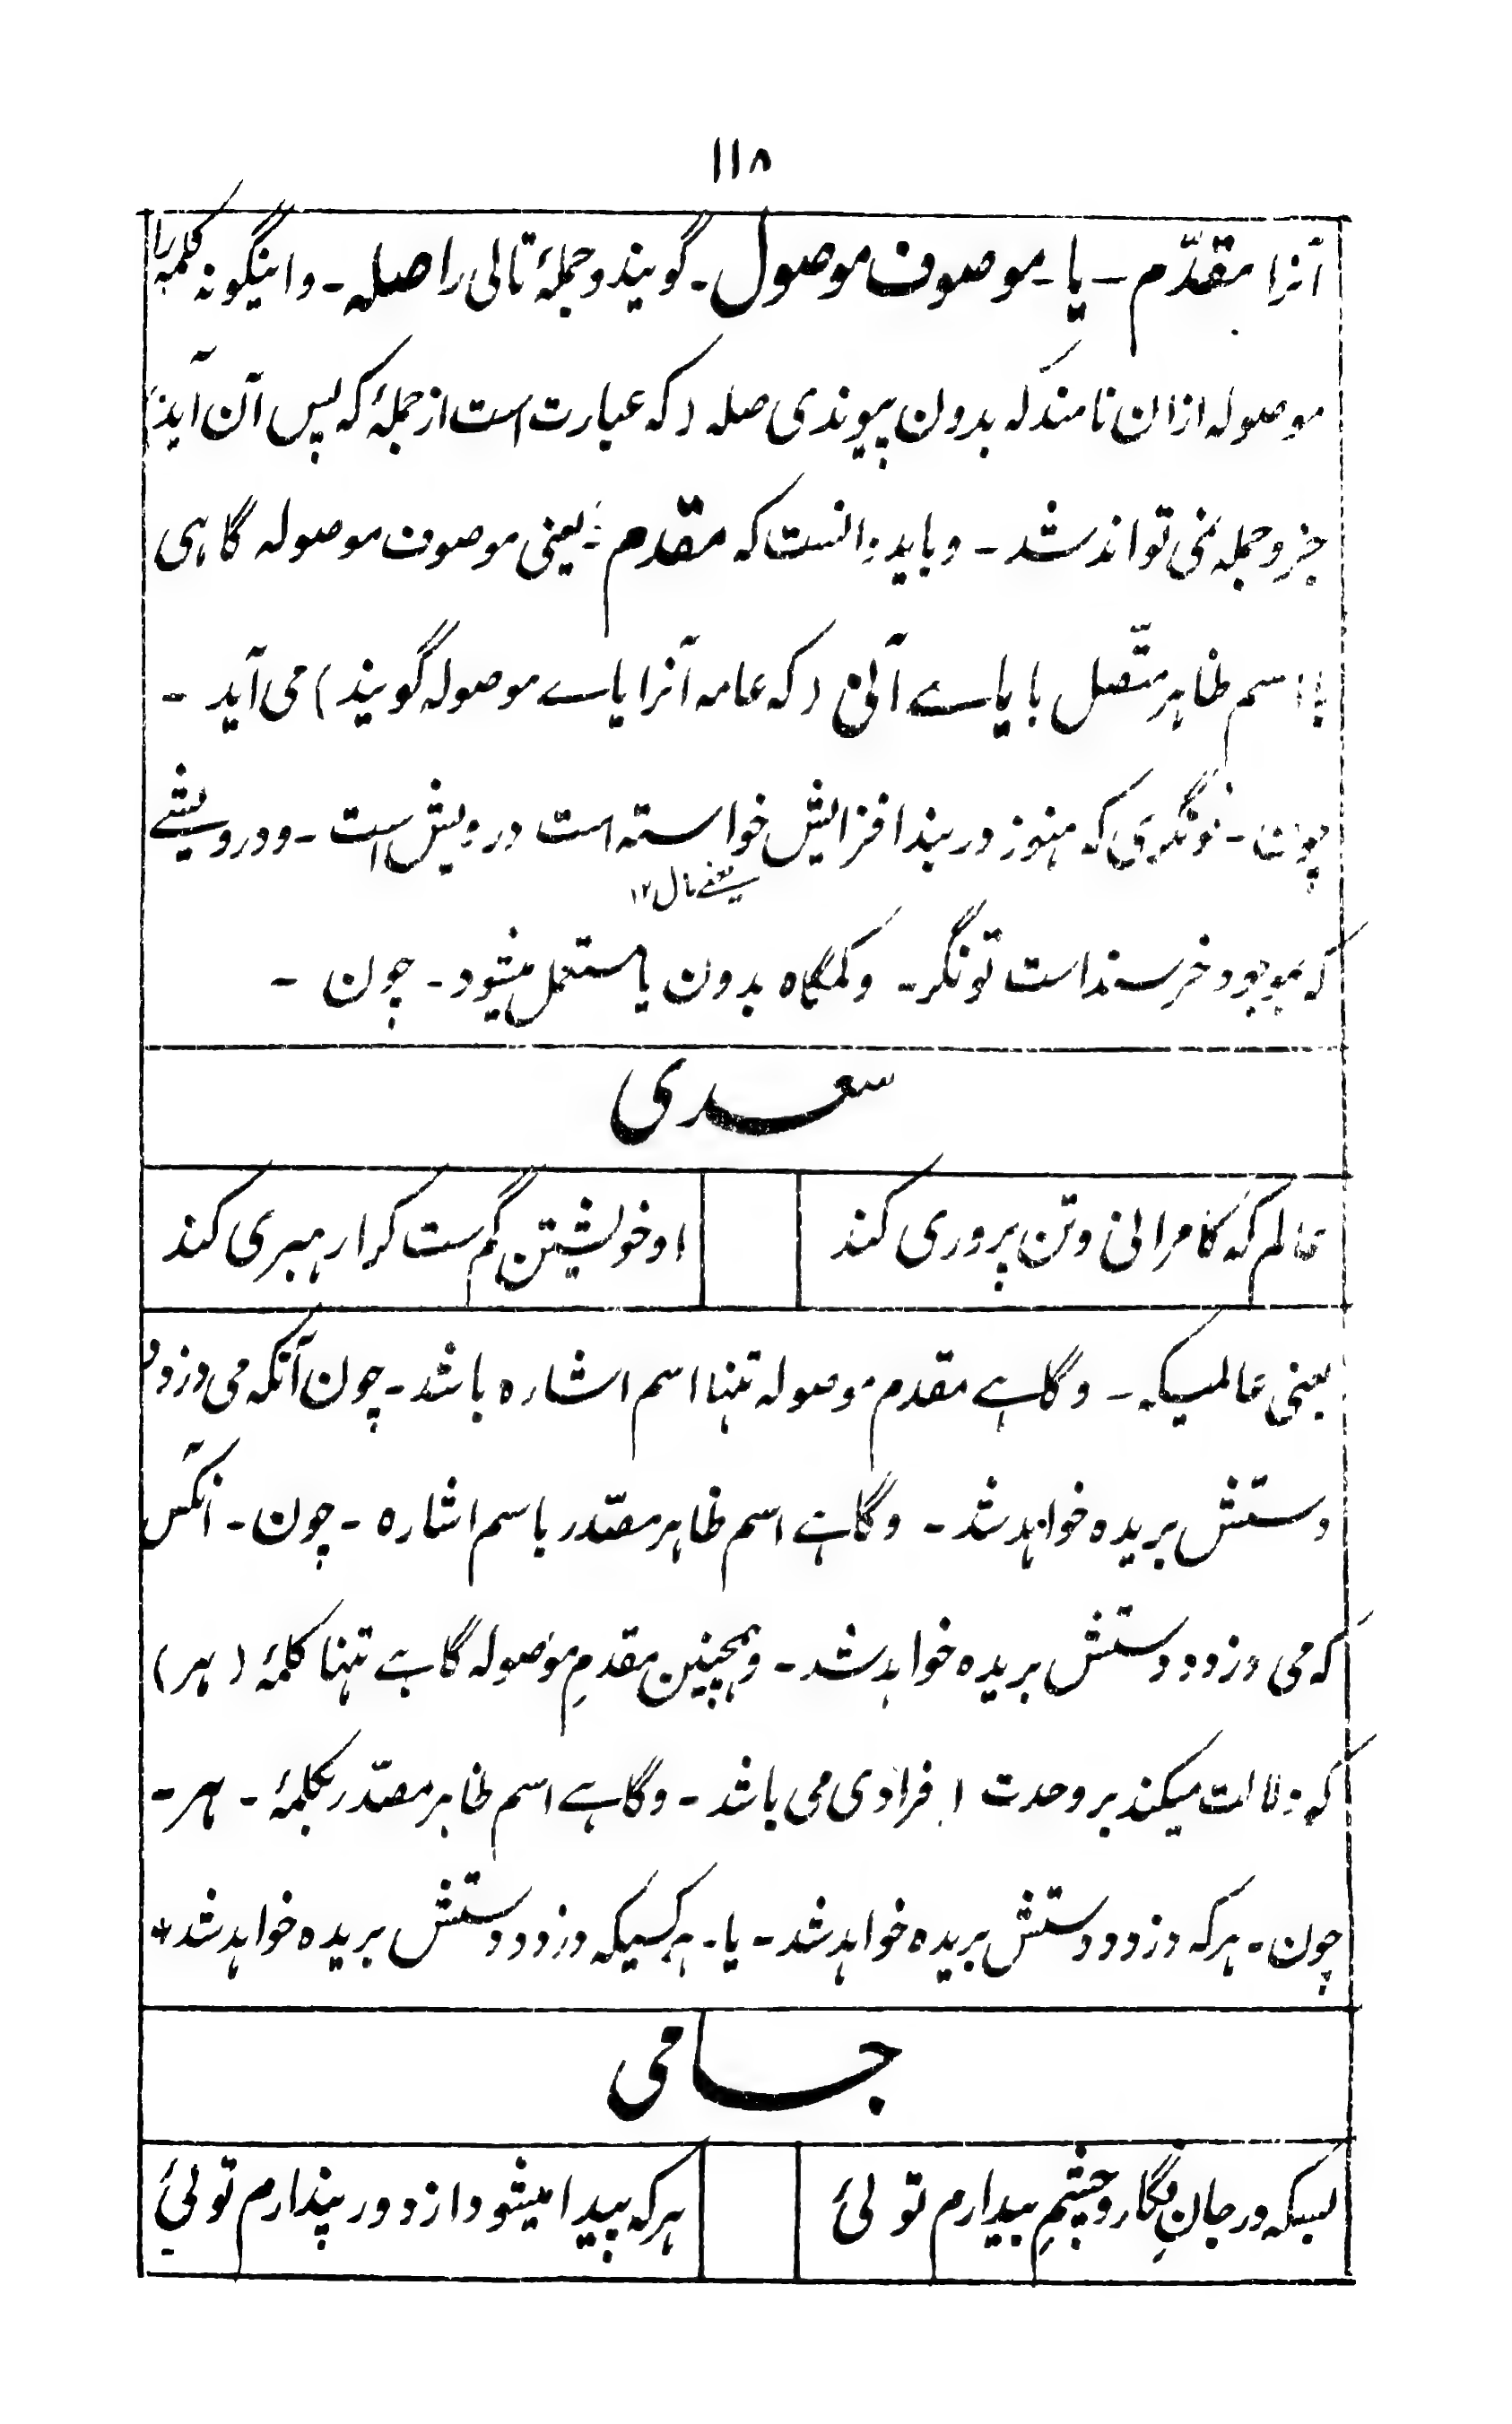 ۱۱۸
آنرا مقدّم - یا - موصوف موصول - گویند و جملهٔ تالی را صله - و اینگونه کلمه را
موصوله ازان نامند که بدون پیوندی صله (که عبارت است از جملهٔ که پس آن آید)
جزو جمله نمی تواند شد - و باید دانست که مقدم - یعنی موصوف موصوله گاهی
با اسم ظاهر متّصل با یاے آنی (که عامه آنرا یاے موصوله گویند) می آید -
چون - تونگری که هنوز در بند افزایش خواسته است درویش است - و درویشے
یعنے مال ۱۲
که بموجود خرسند است تونگر - و کمگاه بدون یا مستعمل میشود - چون -
سعدی
عالم که کامرانی و تن پروری کند
او خویشتن گم ست کرا رهبری کند
یعنی عالمیکه - و گاہے مقدم موصوله تنها اسم اشاره باشد - چون آنکه می دزدد
دستش بریده خواهد شد - و گاہے اسم ظاهر مصدّر باسم اشاره - چون - آنکس
که می دزدد دستش بریده خواهد شد - و همچنین مقدمِ موصوله گاہے تنها کلمهٔ (هر)
که دلالت میکند بر وحدت افرادی می باشد - و گاہے اسم ظاهر مصدّر بکلمهٔ - هر -
چون - هرکه دزدد دستش بریده خواهد شد - یا - هر کسیکه دزدد دستش بریده خواهد شد *
جامی
بسکه در جانِ فگار و چشمِ بیدارم توئی
هرکه پیدا میشود از دور پندارم توئی